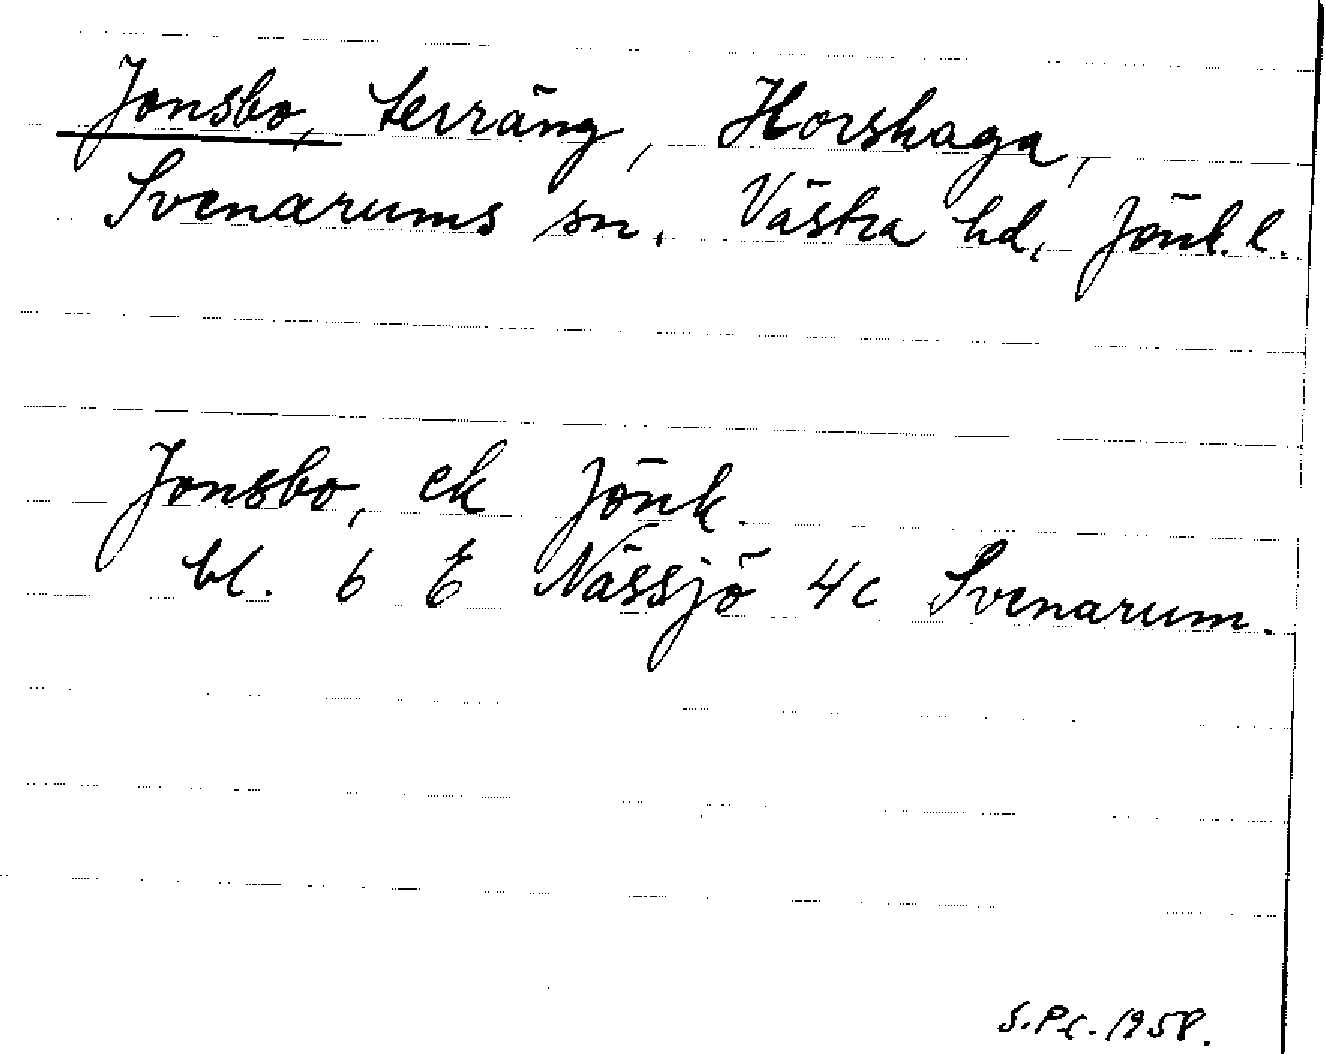 Jonsbo, terräng, Horshaga,
Svenarums sn. Västra hd, Jönk. l.
Jonsbo, ek Jönk.
bl. 6 E Nässjö 4c Svenarum.
S.P.C. 1958.